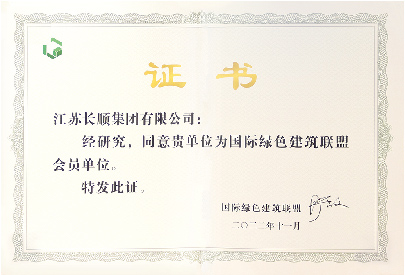 证书
江苏长顺集团有限公司：
经研究，同意贵单位为国际绿色建筑联盟
会员单位。
特发此证。
国际绿色建筑联盟
二〇二二年十一月